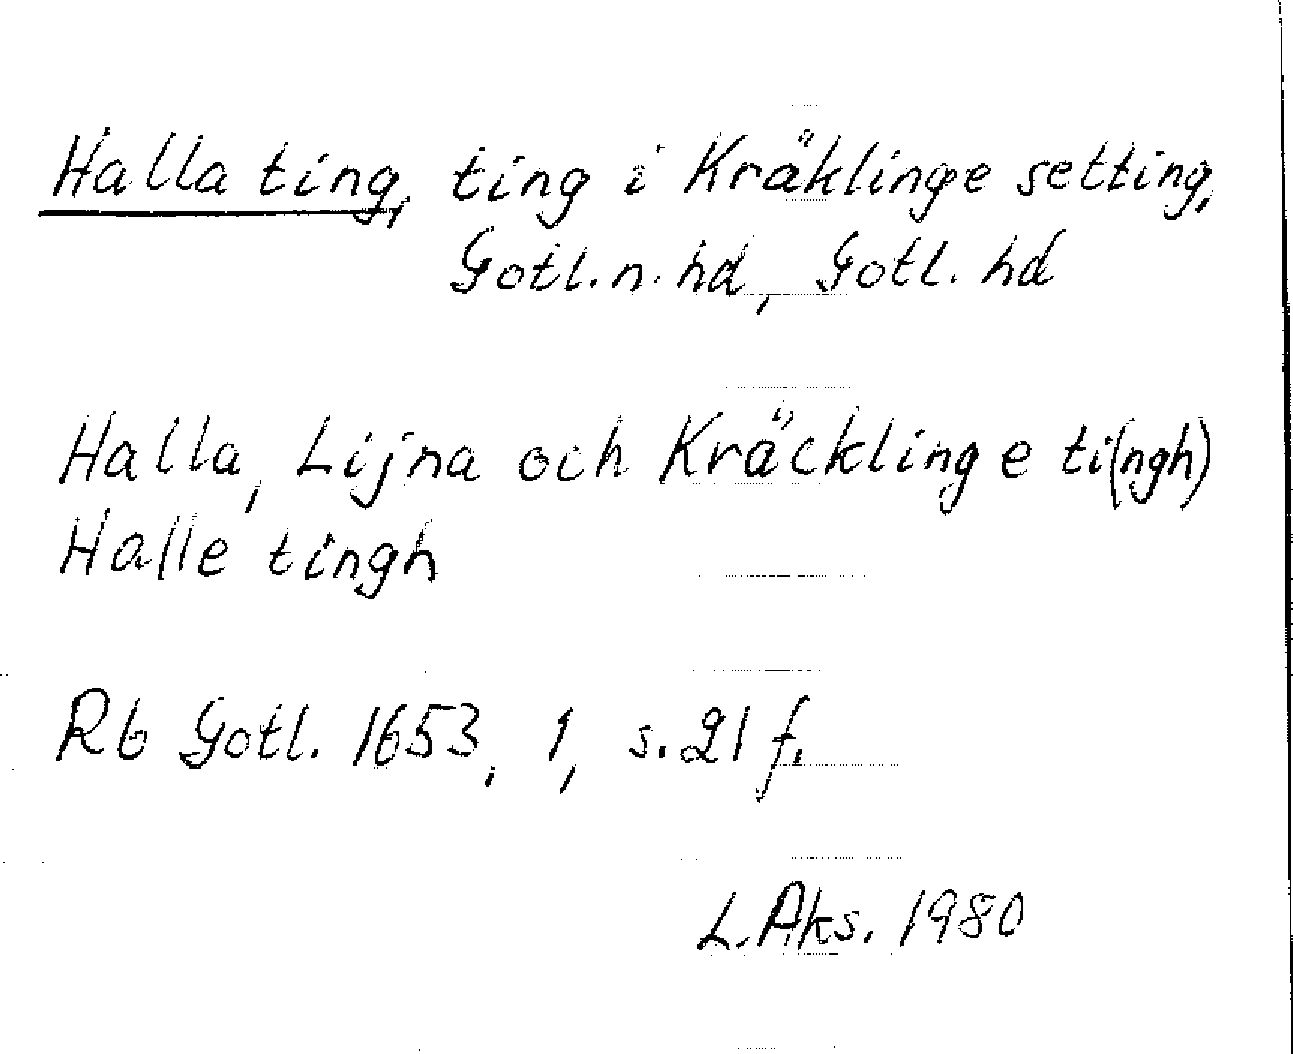 Halla ting, ting i Kräklinge setting,
Gotl. n. hd, Gotl. hd
Halla, Lijna och Kräcklinge ti(ngh)
Halle tingh
Rb Gotl. 1653, 1, s. 21 f.
L. Aks. 1980